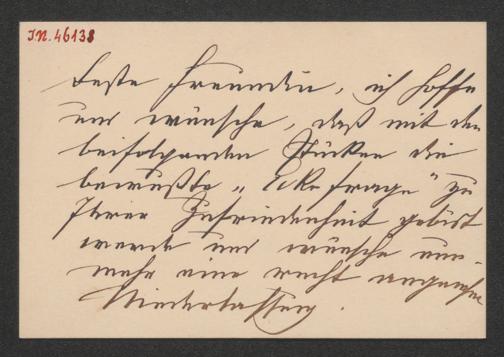 IN. 46138
Beste Freundin, ich hoffe
und wünsche, daß mit den
beifolgenden Stücken die
bewußte „Eckefrage“ zu
Ihrer Zufriedenheit gelöst
werde und wünsche nun-
mehr eine recht angenehme
Niederlassung.